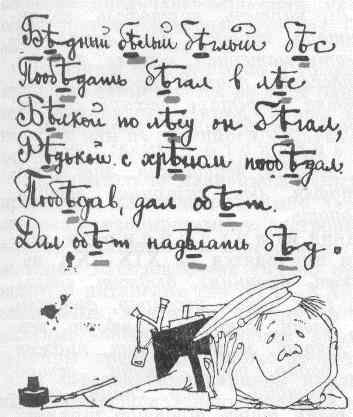 Бѣдный бѣлый бѣглый бѣс
Пообѣдать бѣгал в лѣс
Бѣлкой по лѣсу он бѣгал,
Рѣдькой с хрѣном пообѣдал.
Пообѣдав, дал обѣт.
Дал обѣт надѣлать бѣд.